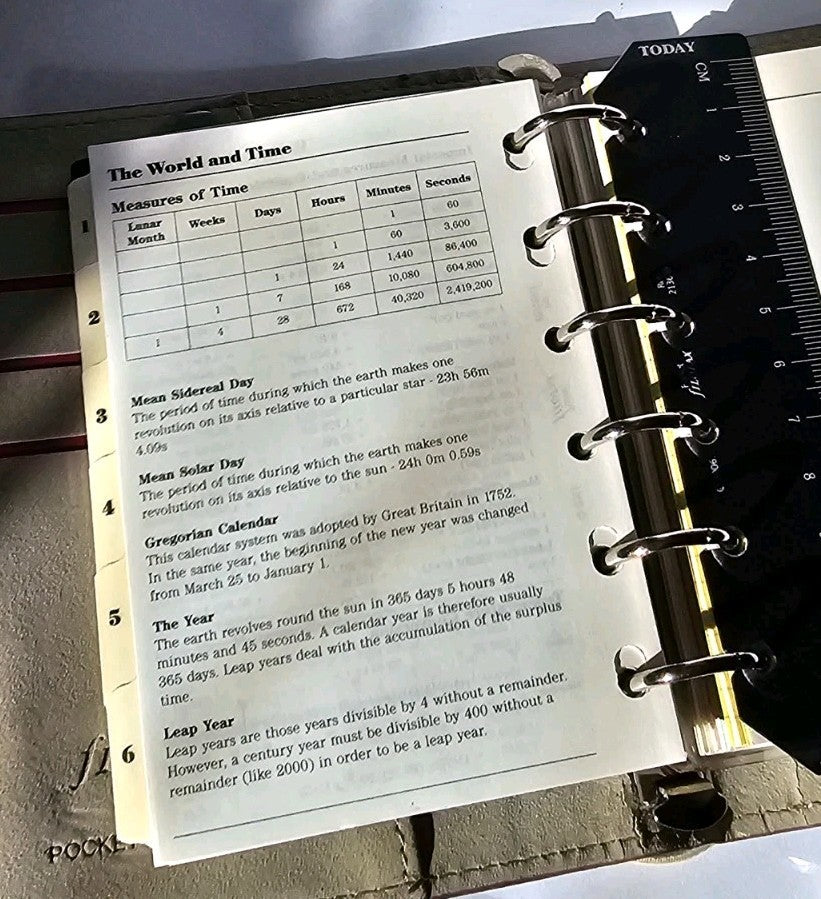 The World and Time
Measures of Time
Lunar Month Weeks Days Hours Minutes Seconds
1 60
1 60 3,600
1 24 1,440 86,400
1 7 168 10,080 604,800
1 4 28 672 40,320 2,419,200
Mean Sidereal Day
The period of time during which the earth makes one
revolution on its axis relative to a particular star - 23h 56m
4.09s
Mean Solar Day
The period of time during which the earth makes one
revolution on its axis relative to the sun - 24h 0m 0.59s
Gregorian Calendar
This calendar system was adopted by Great Britain in 1752.
In the same year, the beginning of the new year was changed
from March 25 to January 1.
The Year
The earth revolves round the sun in 365 days 5 hours 48
minutes and 45 seconds. A calendar year is therefore usually
365 days. Leap years deal with the accumulation of the surplus
time.
Leap Year
Leap years are those years divisible by 4 without a remainder.
However, a century year must be divisible by 400 without a
remainder (like 2000) in order to be a leap year.
1
2
3
4
5
6
TODAY
CM
1
2
3
4
5
6
7
8